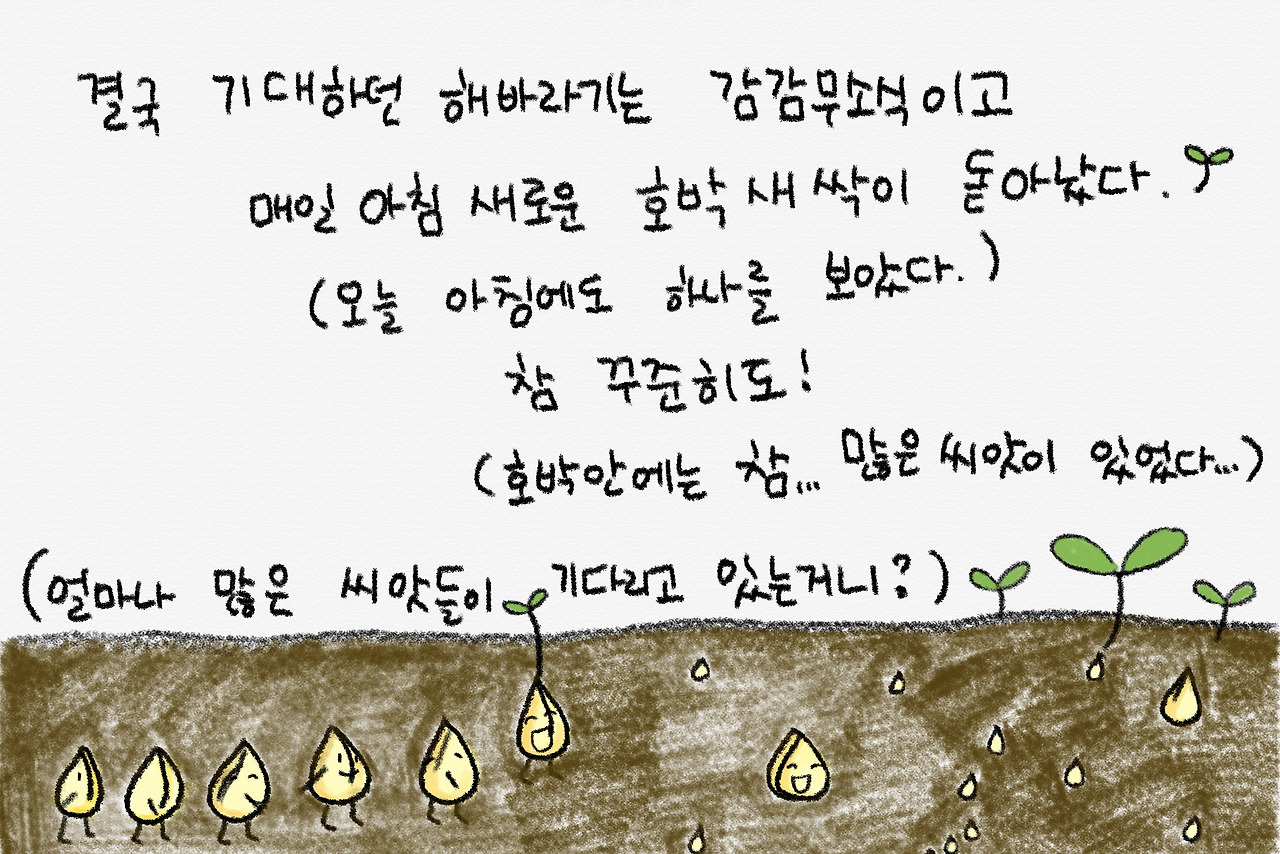 결국 기대하던 해바라기는 감감무소식이고
매일 아침 새로운 호박 새 싹이 돋아났다.
(오늘 아침에도 하나를 보았다.)
참 꾸준히도!
(호박안에는 참... 많은 씨앗이 있었다...)
(얼마나 많은 씨앗들이 기다리고 있는거니?)